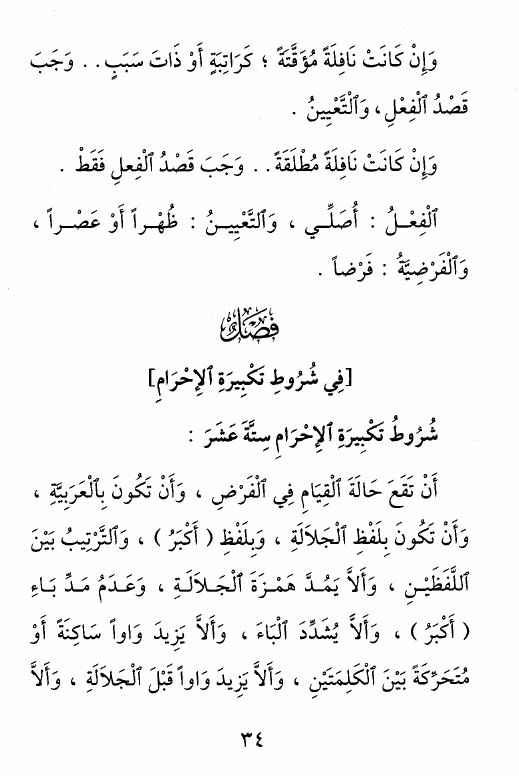 وَإِنْ كَانَتْ نَافِلَةً مُؤَقَّتَةً ؛ كَرَاتِبَةٍ أَوْ ذَاتَ سَبَبٍ . . وَجَبَ
قَصْدُ ٱلْفِعْلِ ، وَٱلتَّعْيِينُ .
وَإِنْ كَانَتْ نَافِلَةً مُطْلَقَةً . . وَجَبَ قَصْدُ ٱلْفِعلِ فَقَطْ .
ٱلْفِعْـلُ : أُصَلِّـي ، وَٱلتَّعْيِيـنُ : ظُهْـراً أَوْ عَصْـراً ،
وَٱلْفَرْضِيَّةُ : فَرْضاً .
فَصْلٌ
[فِي شُرُوطِ تَكْبِيرَةِ ٱلإِحْرَامِ]
شُرُوطُ تَكْبِيرَةِ ٱلإِحْرَامِ سِتَّةَ عَشَرَ :
أَنْ تَقَعَ حَالَةَ ٱلْقِيَامِ فِي ٱلْفَرْضِ ، وَأَنْ تَكُونَ بِٱلْعَرَبِيَّةِ ،
وَأَنْ تَكُونَ بِلَفْظِ ٱلْجَلاَلَةِ ، وَبِلَفْظِ ( أَكْبَرُ ) ، وَٱلتَّرْتِيبُ بَيْنَ
ٱللَّفْظَيْـنِ ، وَأَلاَّ يَمُـدَّ هَمْـزَةَ ٱلْجَـلاَلَـةِ ، وَعَـدَمُ مَـدِّ بَـاءِ
( أَكْبَرُ ) ، وَأَلاَّ يُشَدِّدَ ٱلْبَاءَ ، وَأَلاَّ يَزِيدَ وَاواً سَاكِنَةً أَوْ
مُتَحَرِّكَةً بَيْنَ ٱلْكَلِمَتَيْنِ ، وَأَلاَّ يَزِيدَ وَاواً قَبْلَ ٱلْجَلاَلَةِ ، وَأَلاَّ
٣٤